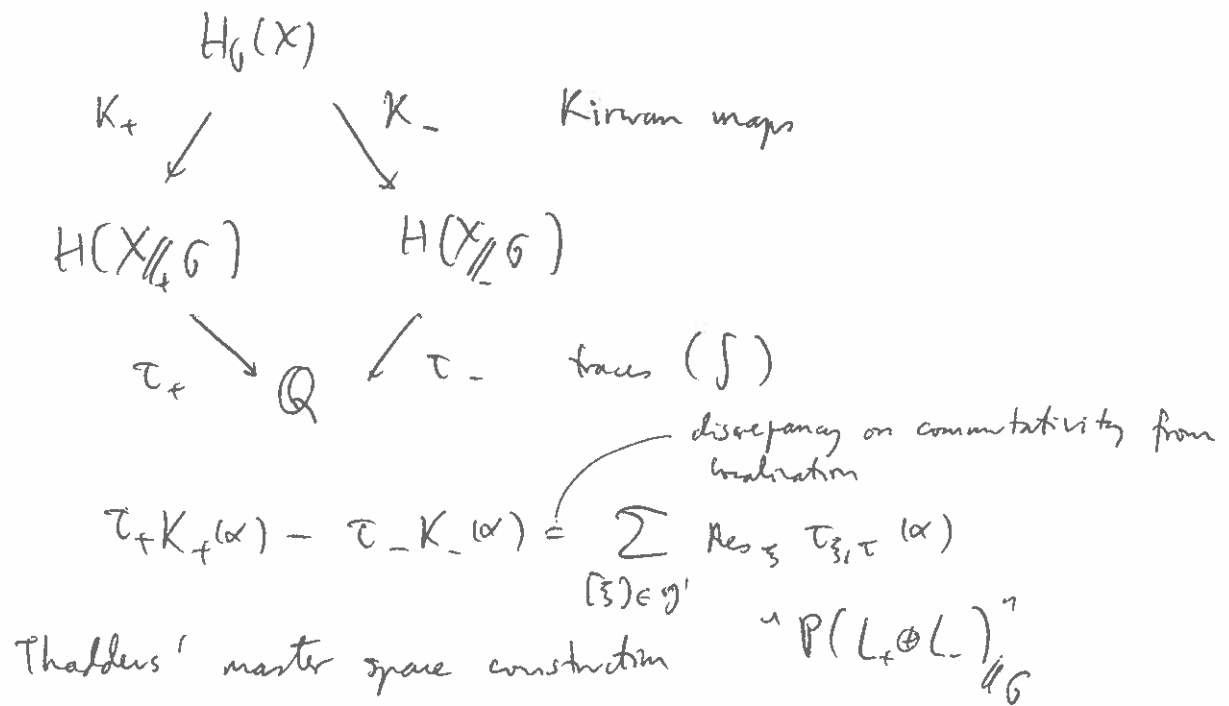 H_G(X)
K_+ K_- Kirwan maps
H(X//_+ G) H(X//_- G)
τ_+ ℚ τ_- traces (∫)
discrepancy on commutativity from
localization
τ_+ K_+(α) − τ_- K_-(α) = ∑ Res_ξ τ_{ξ,τ}(α)
[ξ) ∈ 𝔤'
Thaddeus' master space construction " P(L_+ ⊕ L_-)"//G